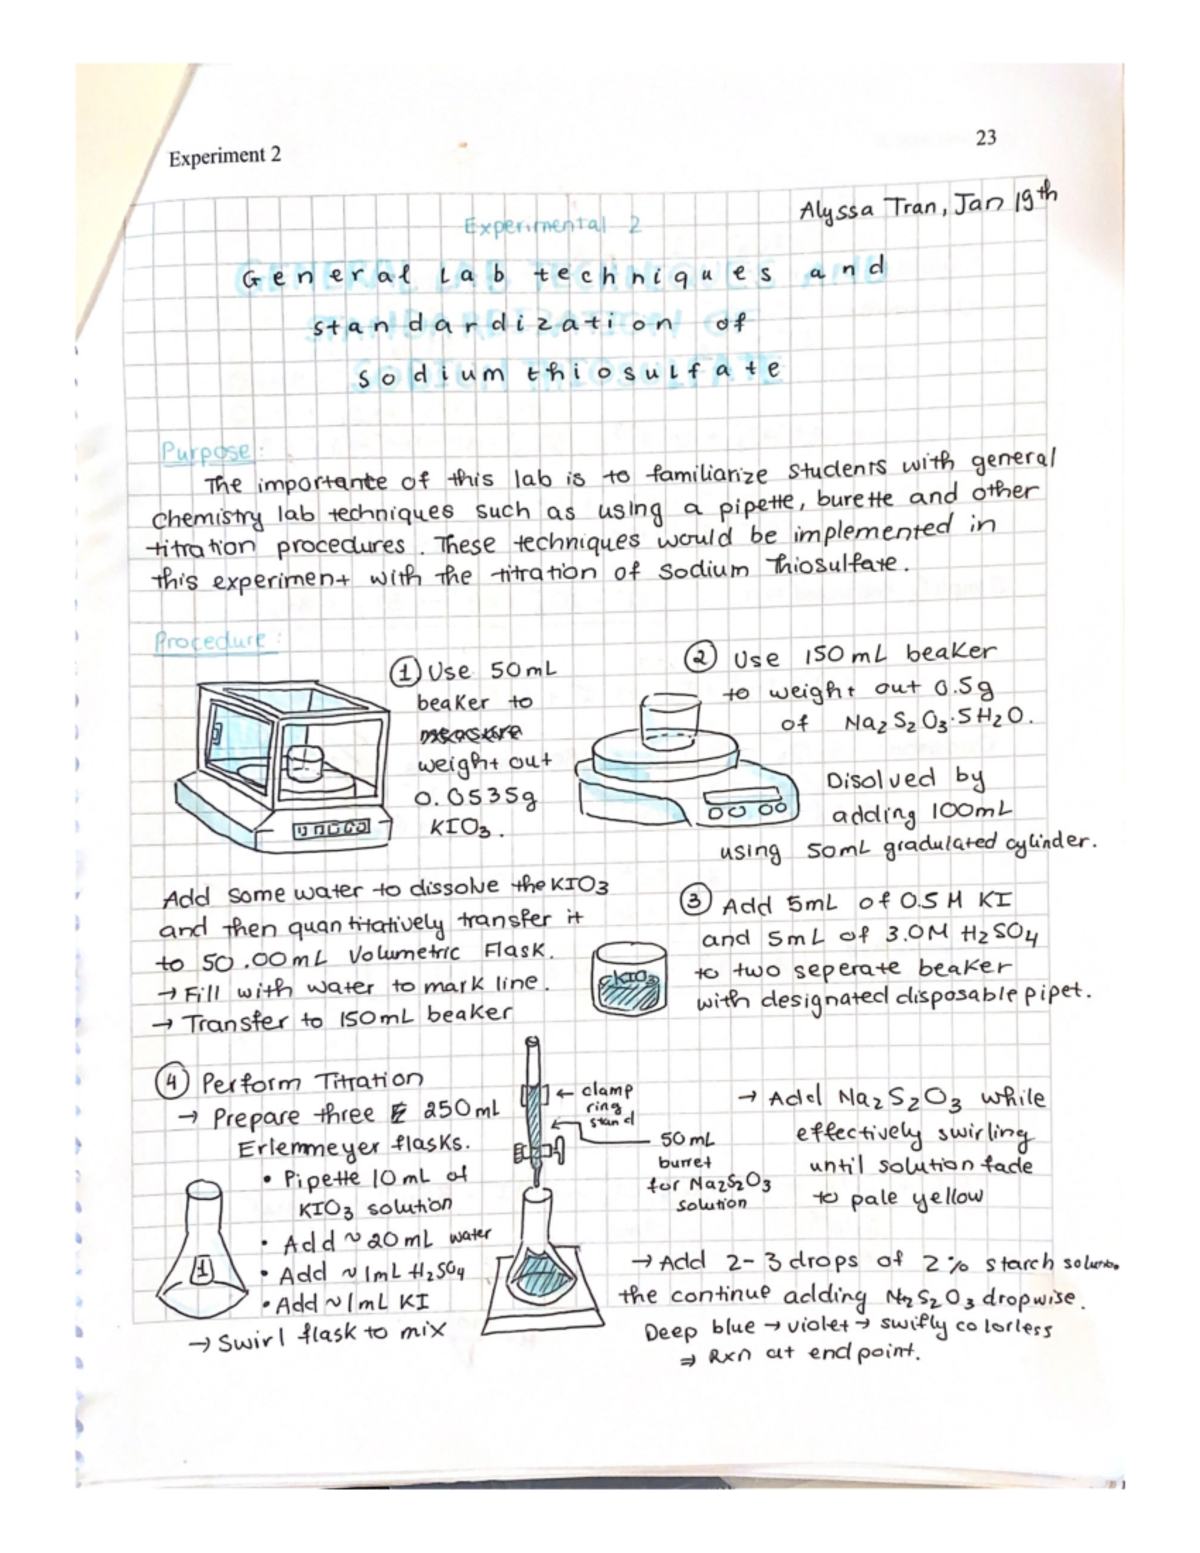 Experiment 2
23
Alyssa Tran, Jan 19th
Experimental 2
General Lab techniques and
standardization of
sodium thiosulfate
Purpose:
The importante of this lab is to familiarize students with general
chemistry lab techniques such as using a pipette, burette and other
titration procedures. These techniques would be implemented in
this experiment with the titration of sodium thiosulfate.
Procedure:
① Use 50mL
beaker to
measure
weight out
0.0535g
KIO3.
Add some water to dissolve the KIO3
and then quantitatively transfer it
to 50.00mL Volumetric Flask.
→ Fill with water to mark line.
→ Transfer to 150mL beaker
② Use 150mL beaker
to weight out 0.5g
of Na2S2O3·5H2O.
Disolved by
adding 100mL
using 50mL gradulated cylinder.
③ Add 5mL of 0.5M KI
and 5mL of 3.0M H2SO4
to two seperate beaker
with designated disposable pipet.
KIO3
④ Perform Titration
→ Prepare three 250mL
Erlenmeyer flasks.
• Pipette 10mL of
KIO3 solution
• Add ~20mL water
• Add ~1mL H2SO4
• Add ~1mL KI
→ Swirl flask to mix
1
← clamp
ring
stand
50mL
burret
for Na2S2O3
solution
→ Add Na2S2O3 while
effectively swirling
until solution fade
to pale yellow
→ Add 2-3 drops of 2% starch
the continue adding Na2S2O3 dropwise.
Deep blue → violet → swiftly colorless
⇒ Rxn at endpoint.